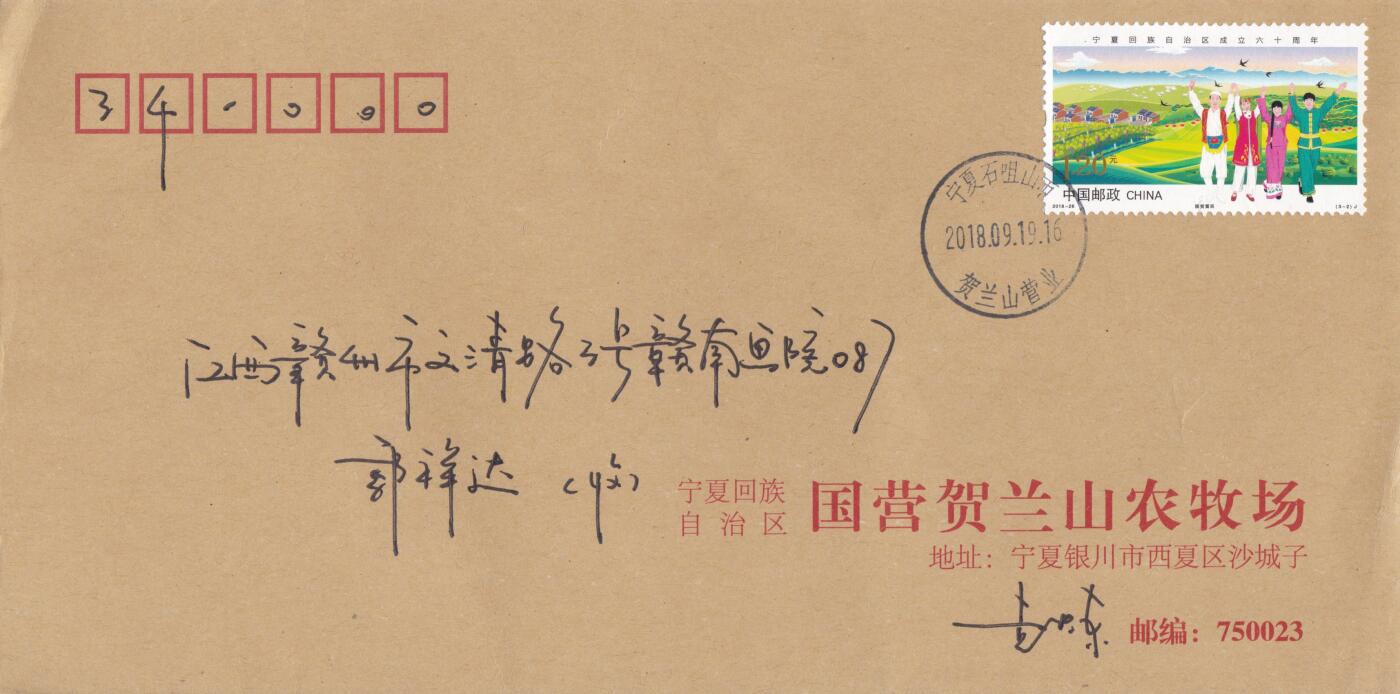 宁夏回族自治区成立六十周年
340000
1.20元
中国邮政 CHINA
2018-26
(3-2)J
宁夏石咀山市
2018.09.19.16
贺兰山营业
江西赣州市文清路3号赣南画院087
郭祥达(收)
宁夏回族
自治区
国营贺兰山农牧场
地址：宁夏银川市西夏区沙城子
邮编：750023